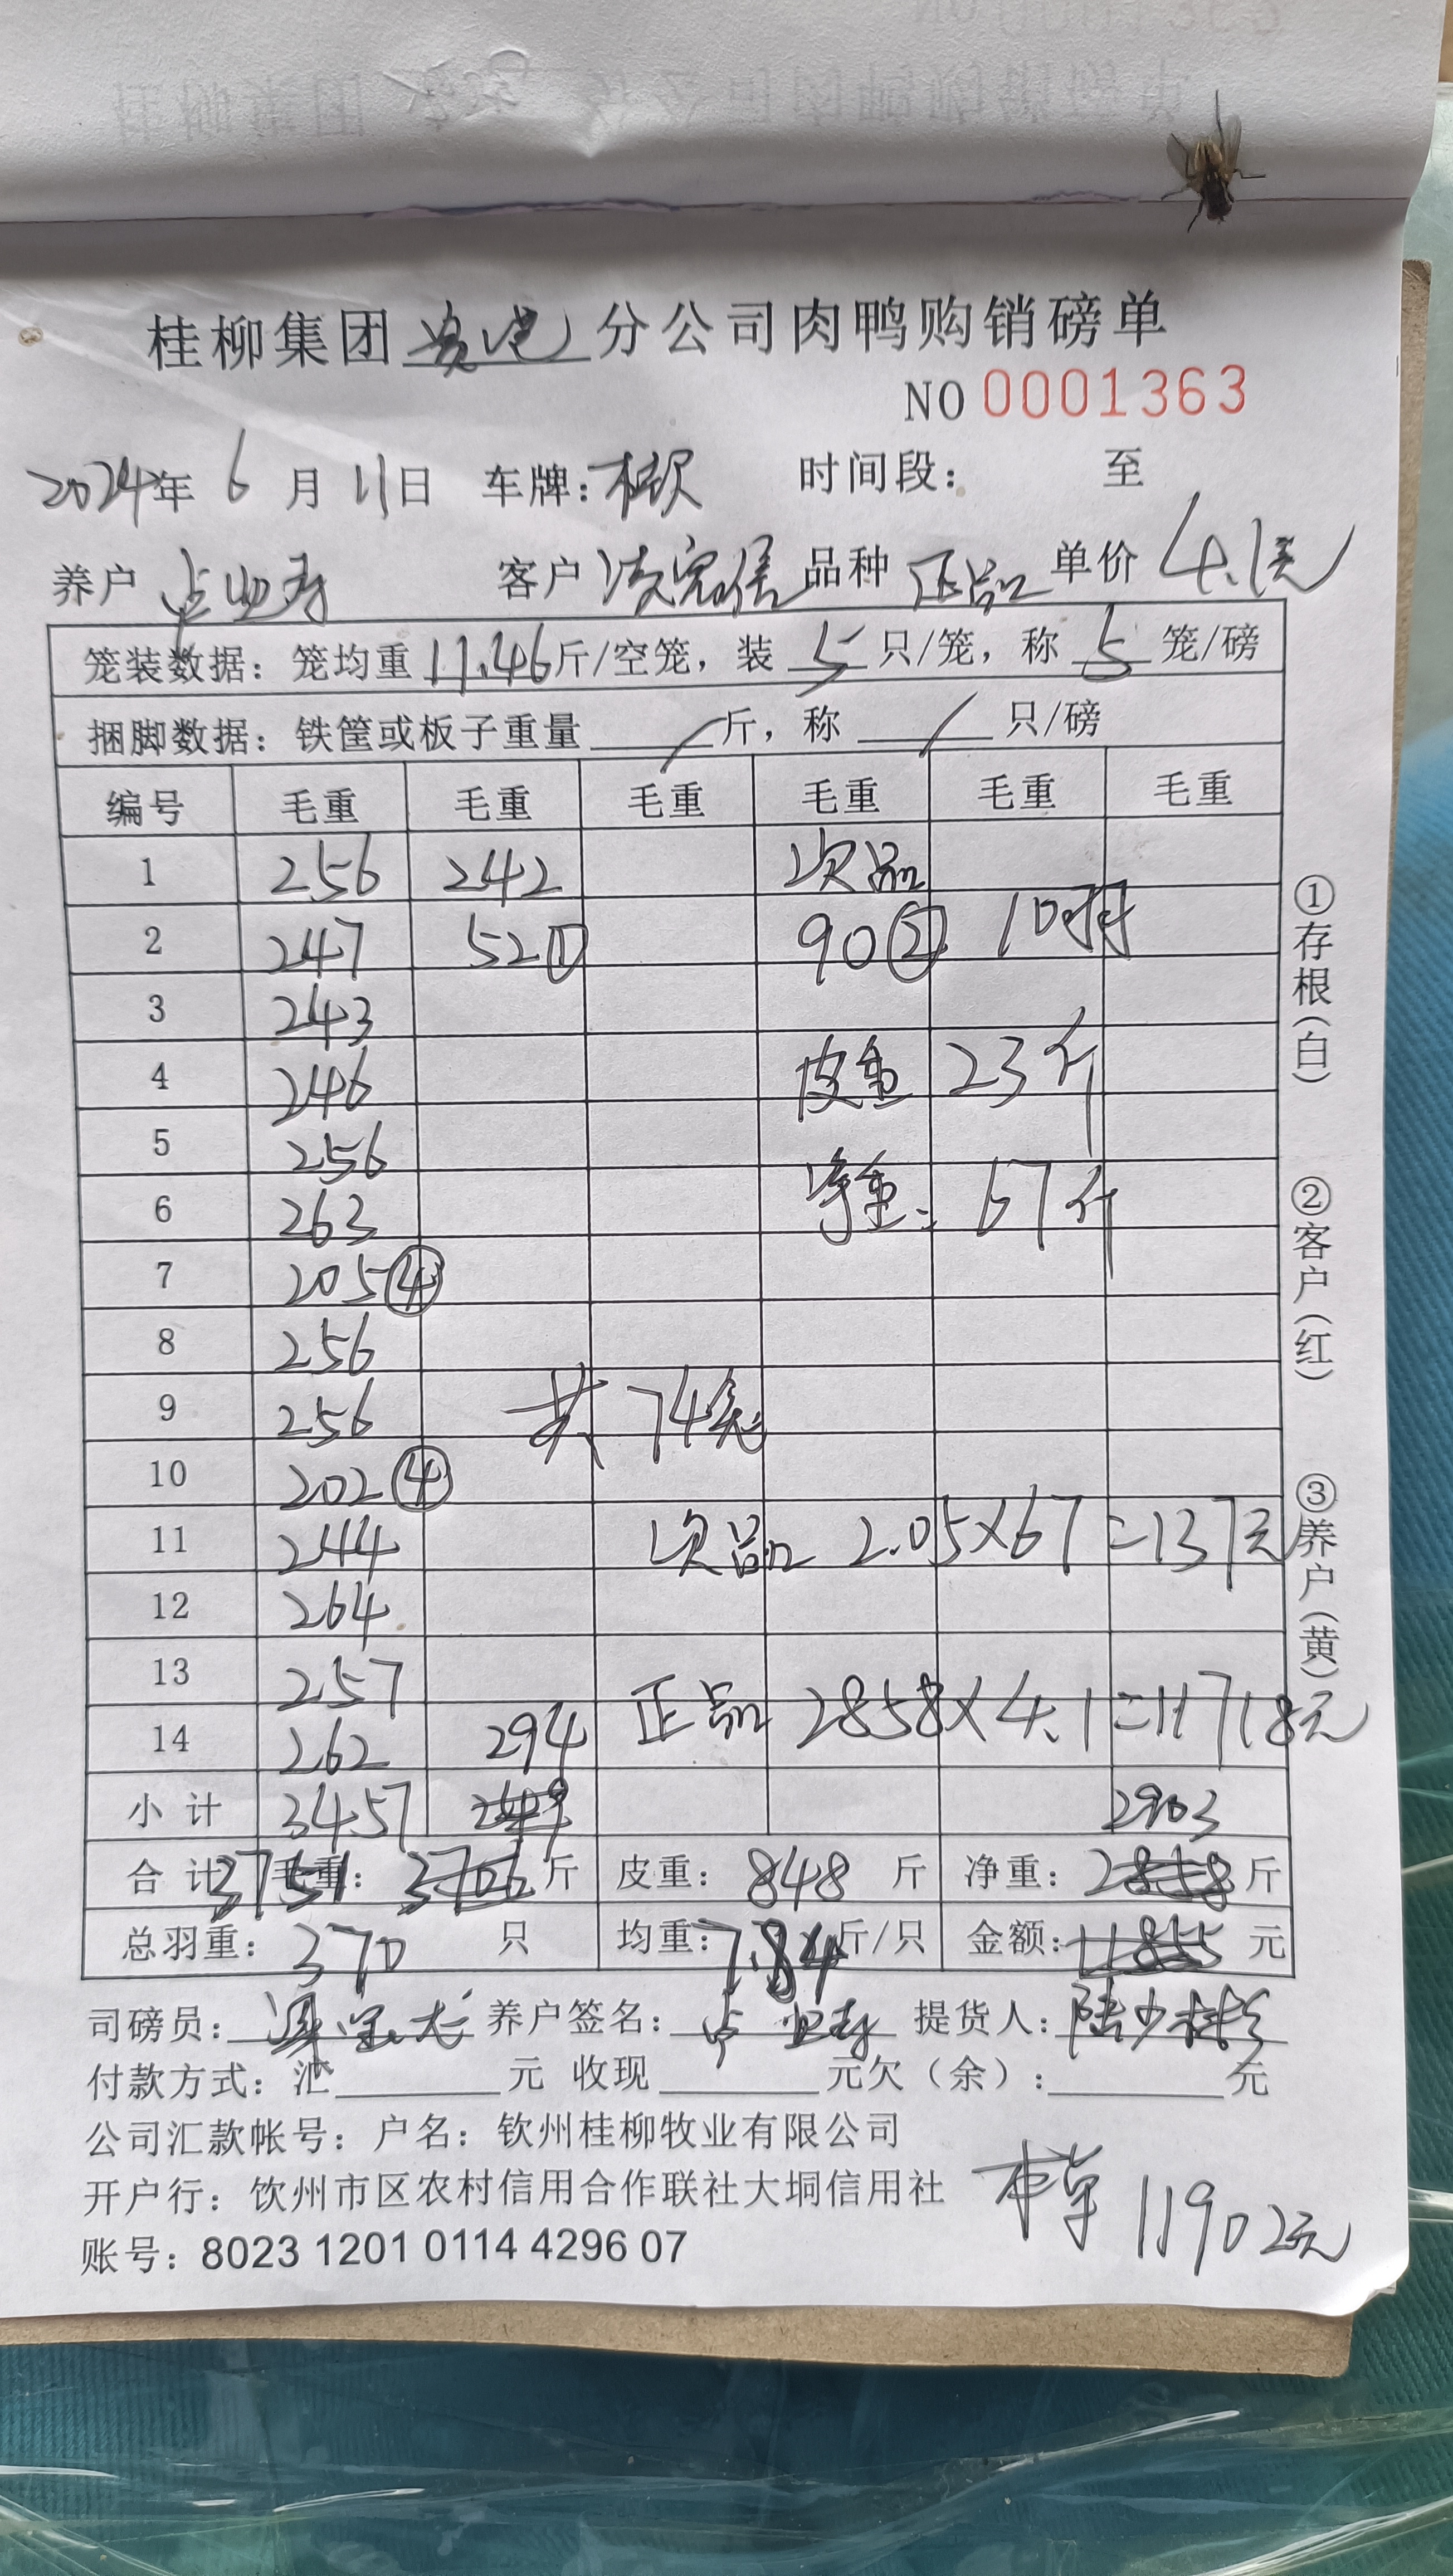 桂柳集团 贵港 分公司肉鸭购销磅单
NO 0001363
2024年 6 月 11日 车牌： 时间段： 至
养户 客户 品种 正品 单价 4.1元
笼装数据：笼均重 11.46 斤/空笼，装 5 只/笼，称 5 笼/磅
捆脚数据：铁筐或板子重量 / 斤，称 / 只/磅
编号 毛重 毛重 毛重 毛重 毛重 毛重
1 256 242 次品
2 247 52① 90② 10只
3 243
4 246 皮重 23斤
5 256
6 263 净重：67斤
7 205④
8 256
9 256 共 74笼
10 202④
11 244 次品 2.05×67=137元
12 264
13 257
14 262 294 正品 2858×4.1=11718元
小计 3457 2903
合计 毛重：3751 3706 斤 皮重：848 斤 净重：2858 斤
总羽重：370 只 均重：7.84 斤/只 金额：11855 元
司磅员： 养户签名： 提货人：陆少彬
付款方式：汇 元 收现 元欠（余）： 元
公司汇款帐号：户名：钦州桂柳牧业有限公司
开户行：饮州市区农村信用合作联社大垌信用社
账号：8023 1201 0114 4296 07
本单 11902元
①存根（白）
②客户（红）
③养户（黄）